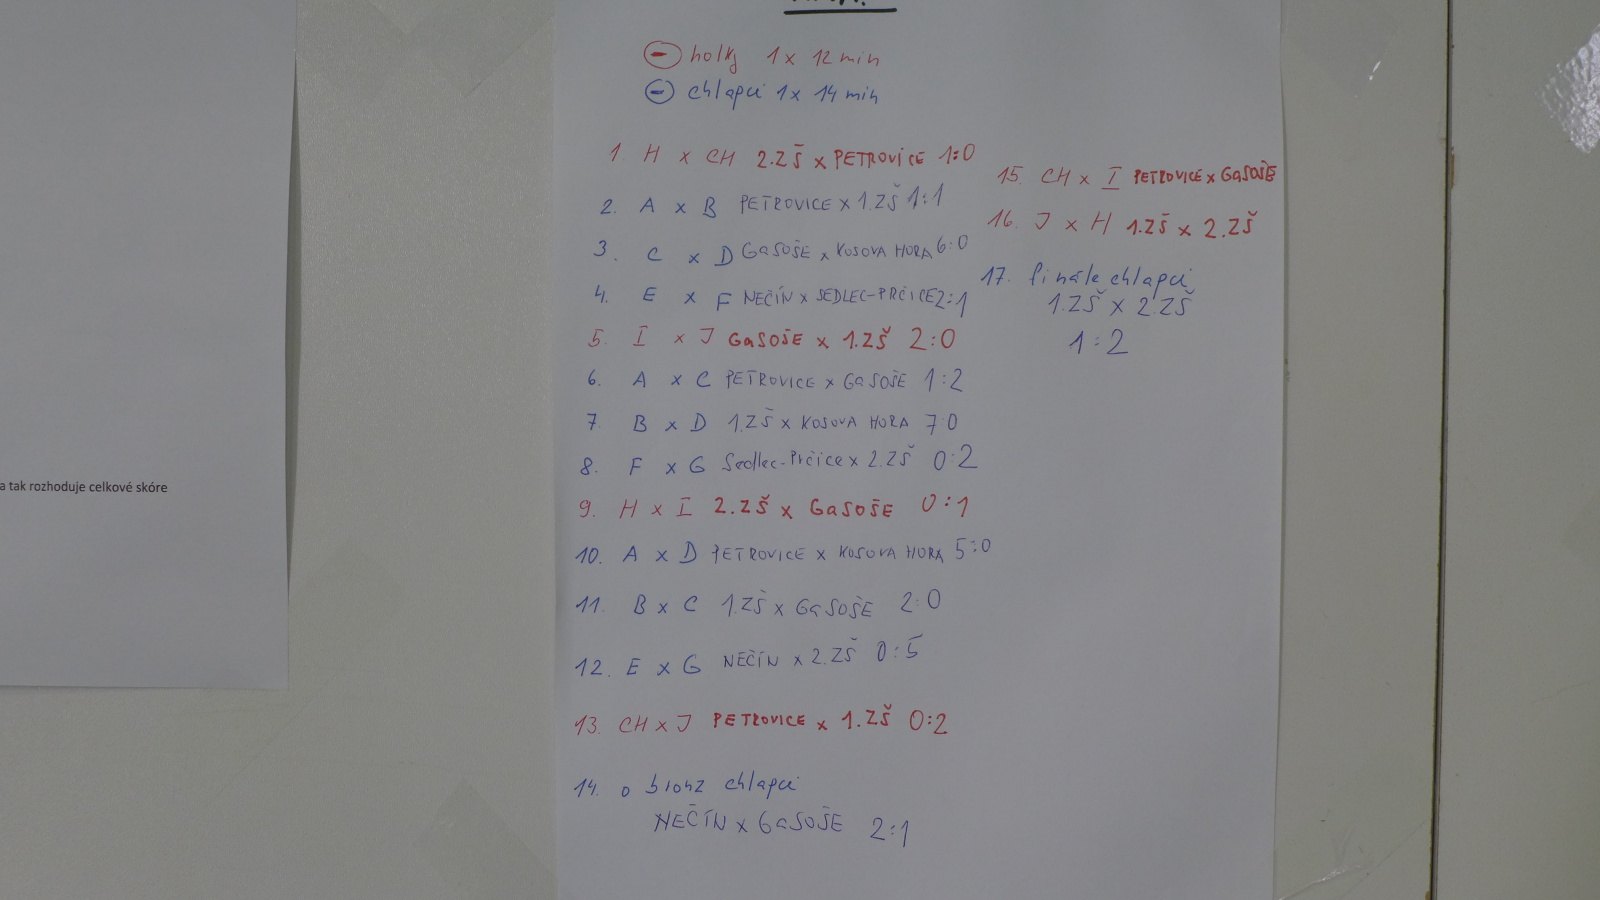 a tak rozhoduje celkové skóre
⊖ holky 1x 12 min
⊖ chlapci 1x 14 min
1. H x CH 2.ZŠ x PETROVICE 1:0
2. A x B PETROVICE x 1.ZŠ 1:1
3. C x D GaSOŠE x KOSOVA HORA 6:0
4. E x F NEČÍN x SEDLEC-PRČICE 2:1
5. I x J GaSOŠE x 1.ZŠ 2:0
6. A x C PETROVICE x GaSOŠE 1:2
7. B x D 1.ZŠ x KOSOVA HORA 7:0
8. F x G Sedlec-Prčice x 2.ZŠ 0:2
9. H x I 2.ZŠ x GaSOŠE 0:1
10. A x D PETROVICE x KOSOVA HORA 5:0
11. B x C 1.ZŠ x GaSOŠE 2:0
12. E x G NEČÍN x 2.ZŠ 0:5
13. CH x J PETROVICE x 1.ZŠ 0:2
14. o bronz chlapci
NEČÍN x GaSOŠE 2:1
15. CH x I PETROVICE x GaSOŠE
16. J x H 1.ZŠ x 2.ZŠ
17. finále chlapci
1.ZŠ x 2.ZŠ
1:2